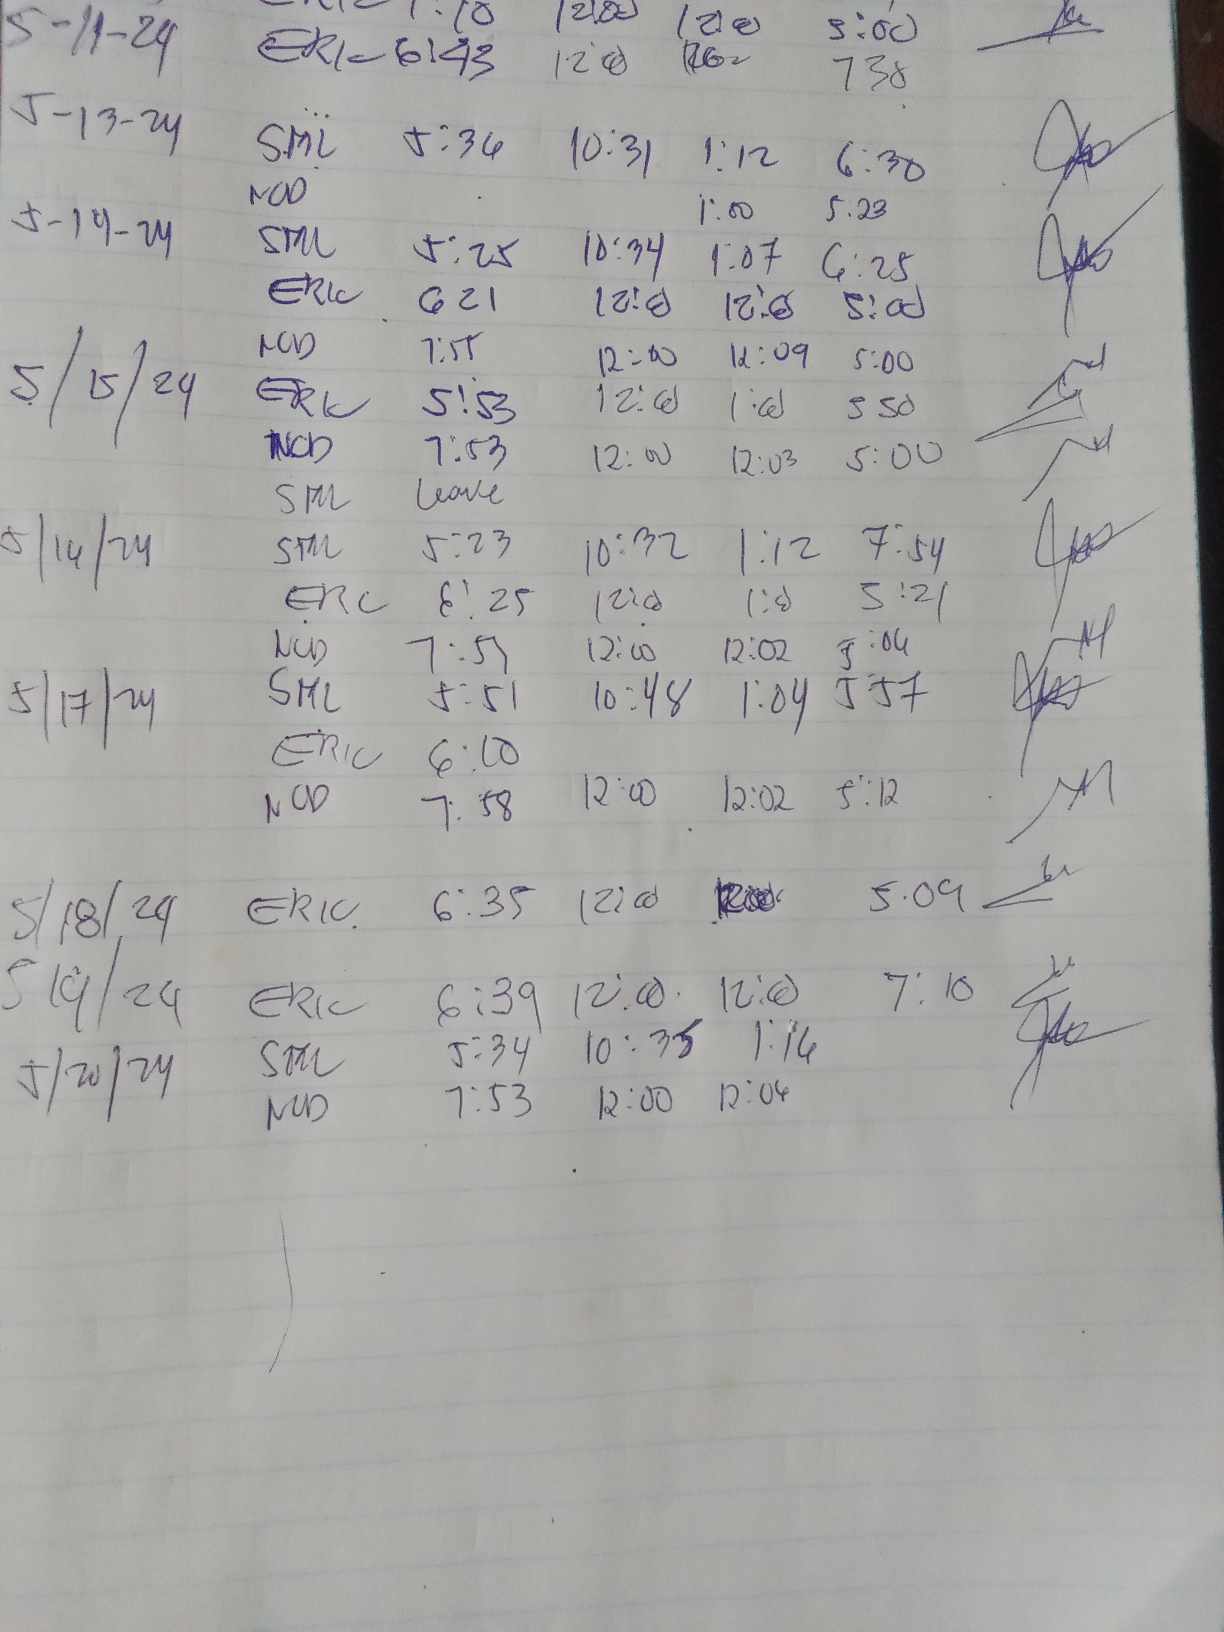 ERIC 7:10 12:00 12:00 5:00
5-11-24 ERIC 6:43 12:00 738
5-13-24
SML 5:36 10:31 1:12 6:30
NOD 1:00 5.23
5-14-24 SML 5:25 10:34 1:07 6:25
ERIC 621 12:00 12:00 5:00
NOD 7:55 12:00 12:09 5:00
5/15/24 ERIC 5:53 12:00 1:00 550
NOD 7:53 12:00 12:03 5:00
SML leave
5/16/24 SML 5:23 10:32 1:12 7:54
ERIC 6:25 12:00 1:00 5:21
NOD 7:59 12:00 12:02 5:06
5/17/24 SML 5:51 10:48 1:04 557
ERIC 6:10
NOD 7:58 12:00 12:02 5:12
5/18/24 ERIC 6:35 12:00 5.09
5 19/24 ERIC 6:39 12:00 12:00 7:10
5/20/24 SML 5:34 10:35 1:16
NOD 7:53 12:00 12:04